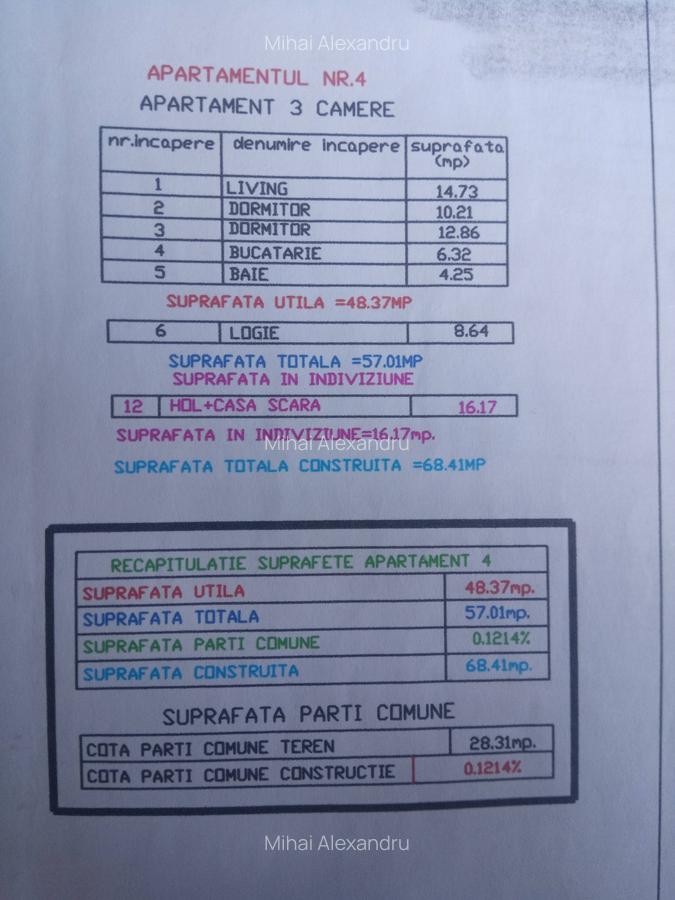 Mihai Alexandru
APARTAMENTUL NR.4
APARTAMENT 3 CAMERE
nr.incapere denumire incapere suprafata (mp)
1 LIVING 14.73
2 DORMITOR 10.21
3 DORMITOR 12.86
4 BUCATARIE 6.32
5 BAIE 4.25
SUPRAFATA UTILA =48.37MP
6 LOGIE 8.64
SUPRAFATA TOTALA =57.01MP
SUPRAFATA IN INDIVIZIUNE
12 HOL+CASA SCARA 16.17
SUPRAFATA IN INDIVIZIUNE=16.17mp.
Mihai Alexandru
SUPRAFATA TOTALA CONSTRUITA =68.41MP
RECAPITULATIE SUPRAFETE APARTAMENT 4
SUPRAFATA UTILA 48.37mp.
SUPRAFATA TOTALA 57.01mp.
SUPRAFATA PARTI COMUNE 0.1214%
SUPRAFATA CONSTRUITA 68.41mp.
SUPRAFATA PARTI COMUNE
COTA PARTI COMUNE TEREN 28.31mp.
COTA PARTI COMUNE CONSTRUCTIE 0.1214%
Mihai Alexandru